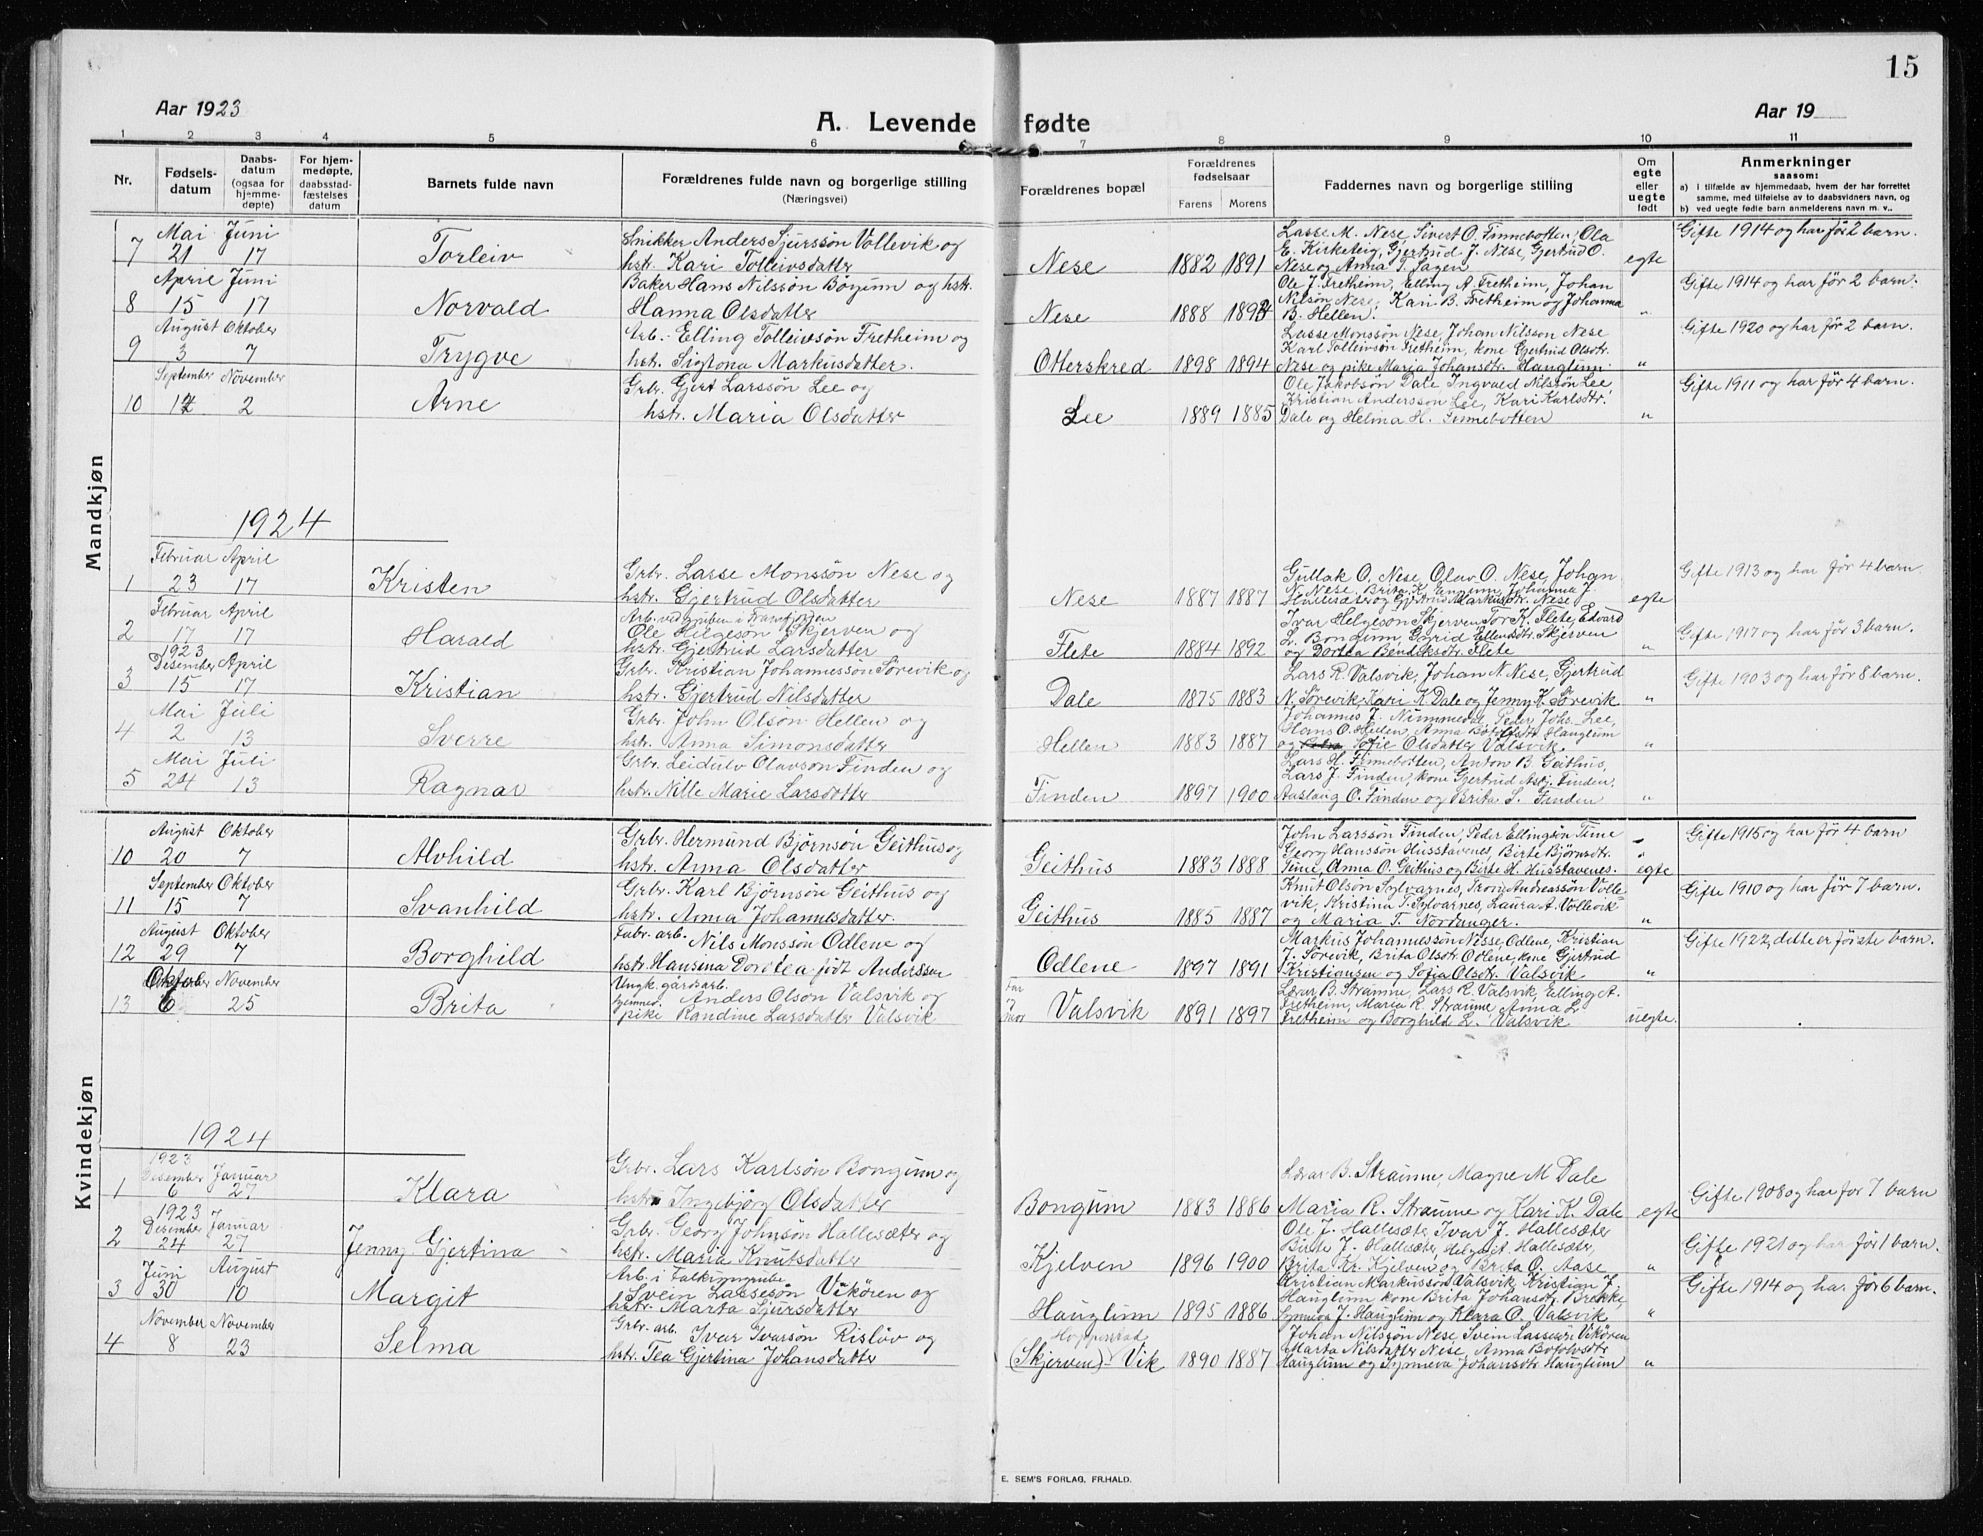 15
Aar 1923
A. Levende fødte
Aar 19
1 2 3 4 5 6 7 8 9 10 11
Nr.
Fødsels-
datum
Daabs-
datum
(ogsaa for
hjemme-
døpte)
For hjem-
medøpte,
daabsstad-
fæstelses
datum
Barnets fulde navn
Forældrenes fulde navn og borgerlige stilling
(Næringsvei)
Forældrenes bopæl
Forældrenes
fødselsaar
Farens Morens
Faddernes navn og borgerlige stilling
Om
egte
eller
uegte
født
Anmerkninger
saasom:
a) i tilfælde av hjemmedaab, hvem der har forrettet
samme, med tilføielse av to daabsvidners navn, og
b) ved uegte fødte barn anmelderens navn m. v..
Mandkjøn
Mai Juni
7 21 17 Torleiv
Snikker Anders Sjurssön Vollevik og
hstr. Kari Tolleivsdatter
Nese 1882 1891
Lasse M. Nese, Sivert O. Finnebotten, Ola
E. Kirketeig, Gjertrud J. Nese, Gjertrud O.
Nese og Anna T. Sagen
egte
Gifte 1914 og har før 2 barn.
April Juni
8 15 17 Norvald
Baker Hans Nilssön Bøgum og hstr.
Hanna Olsdatter
Nese 1888 189
Ole J. Fretheim, Elling A. Fretheim, Johan
Nilsön Nese, Kari B. Fretheim og Johanna
B. Hellen.
"
Gifte 1914 og har før 2 barn.
August Oktober
9 3 7 Trygve
Arb. Elling Tolleivsön Fretheim og
hstr. Sigtona Markusdatter.
Otterskred 1898 1894
Lasse Monssön Nese, Johan Nilsson Nese
Karl Tolleivsön Fretheim, kone Gjertrud Olsdtr.
Nese og pike Maria Johansdtr. Hauglum.
"
Gifte 1920 og har før 2 barn.
September November
10 2 Arne
Grbr. Gjert Larssön Lee og
hstr. Maria Olsdatter
Lee 1889 1885
Ole Jakobsön Dale, Ingvald Nilssön Lee,
Kristian Anderssön Lee, Kari Karlsdtr.
Dale og Helma H. Finnebotten
"
Gifte 1911 og har før 4 barn.
1924
Februar April
1 23 17 Kristen
Grbr. Lasse Monssön Nese og
hstr. Gjertrud Olsdatter
Nese 1887 1887
Gullak O. Nese, Olav O. Nese, Johan
N. Nese, Brita K. Engum, Johanna J.
Hallesæter og Gjertrud Markusdtr. Nese
egte
Gifte 1913 og har før 4 barn.
Februar April
2 17 17 Harald
Arb. ved gruben i Framfjorden
Ole Helgeson Skjerven og
hstr. Gjertrud Larsdatter
Flete 1884 1892
Ivar Helgeson Skjerven, Tor K. Flete, Edvard
L. Bon Linn, Gurid Ellensdtr. Skjerven
og Dortea Bendiksdtr. Flete
"
Gifte 1917 og har før 3 barn.
1923
Desember April
3 15 17 Kristian
Grbr. Kristian Johannessön Sørevik og
hstr. Gjertrud Nilsdatter
Dale 1875 1883
Lars R. Valsvik, Johan N. Nese, Gjertrud
N. Sørevik, Kari K. Dale og Jenny K. Sørevik
"
Gifte 1903 og har før 8 barn.
Mai Juli
4 2 13 Sverre
Grbr. John Olsön Hellen og
hstr. Anna Simonsdatter
Hellen 1883 1887
Johannes J. Nummedal, Peder Johs. Lee,
Hans O. Hellen, Anna Botolfsdtr. Hauglum
og Sofie Olsdatter Valsvik
"
Mai Juli
5 24 13 Ragnar
Grbr. Leidulv Olavson Finden og
hstr. Nille Marie Larsdatter
Finden 1897 1900
Lars H. Finnebotten, Anton B. Geithus,
Lars J. Finden, kone Gjertrud Askj. Finden,
Aaslaug O. Finden og Brita L. Finden
"
Kvindekjøn
August Oktober
10 20 7 Alvhild
Grbr. Hermund Björnsön Geithus og
hstr. Anna Olsdatter
Geithus 1883 1888
John Larssön Finden, Peder Ellingsön Time
Georg Hanssön Husstavenes, Birte Björnsdtr.
Time, Anna O. Geithus og Birte H. Husstavenes.
egte
Gifte 1915 og har før 4 barn
September Oktober
11 15 7 Svanhild
Grbr. Karl Björnsön Geithus og
hstr. Anna Johannesdatter.
Geithus 1885 1887
Knut Olson Sylvarnes, Trong Andreassön Volle-
vik, Kristina T. Sylvarnes, Laura A. Vollevik
og Maria T. Nordanger.
"
Gifte 1910 og har før 7 barn.
August Oktober
12 29 7 Borghild
Fabr. arb. Nils Monssön Odlene og
hstr. Hansina Dorotea født Anderssen
Odlene 1897 1891
Markus Johannessön Nesse, Odlene, Kristian
J. Sørevik, Brita Olsdtr. Odlene, kone Gjertrud
Kristiansen og Sofia Olsdtr. Valsvik
"
Gifte 1922, dette er første barn.
Oktober November
13 6 25 Brita
Ungk. gardsarb.
Anders Olson Valsvik og
pike Randine Larsdatter Valsvik
far
mor
Valsvik 1891 1897
Lærar B. Straume, Lars R. Valsvik, Elling A.
Fretheim, Maria R. Straume, Anna L.
Fretheim og Borghild L. Valsvik
uegte.
1924
1923
Desember Januar
1 6 27 Klara
Grbr. Lars Karlsön Bongum og
hstr. Ingebjørg Olsdatter
Bongum 1883 1886
Lærar B. Straume, Magne M. Dale
Maria R. Straume og Kari K. Dale
egte
Gifte 1908 og har før 7 barn
1923
Desember Januar
2 24 27 Jenny Gjertina
Grbr. Georg Johnsön Hallesæter og
hstr. Maria Knutsdatter
Kjelven 1896 1900
Ole J. Hallesæter, Ivar J. Hallesæter
Birte J. Hallesæter, Helga Hallesæter,
Brita Kr. Kjelven og Brita O. Aase
"
Gifte 1921 og har før 1 barn.
Juni August
3 30 10 Margit
Arb. i Falkumgrube
Svein Lassesön Vikören og
hstr. Marta Sjursdatter
Hauglum 1895 1886
Kristian Markussön Valsvik, Kristian J.
Hauglum, kone Brita Johansdtr. Brekke,
Synneva J. Hauglum og Klara O. Valsvik
"
Gifte 1914 og har før 6 barn.
November November
4 8 23 Selma
Grbr. arb. Ivar Ivarsön Risløv og
hstr. Tea Gjertina Johansdatter
Hopperstad
(Skjerven) Vik 1890 1887
Johan Nilssön Nese, Svein Lassesen Vikören
Marta Nilsdatter Nese, Anna Botolvsdtr.
Hauglum og Synneva Johansdtr. Hauglum
"
E. SEM'S FORLAG, FR.HALD.